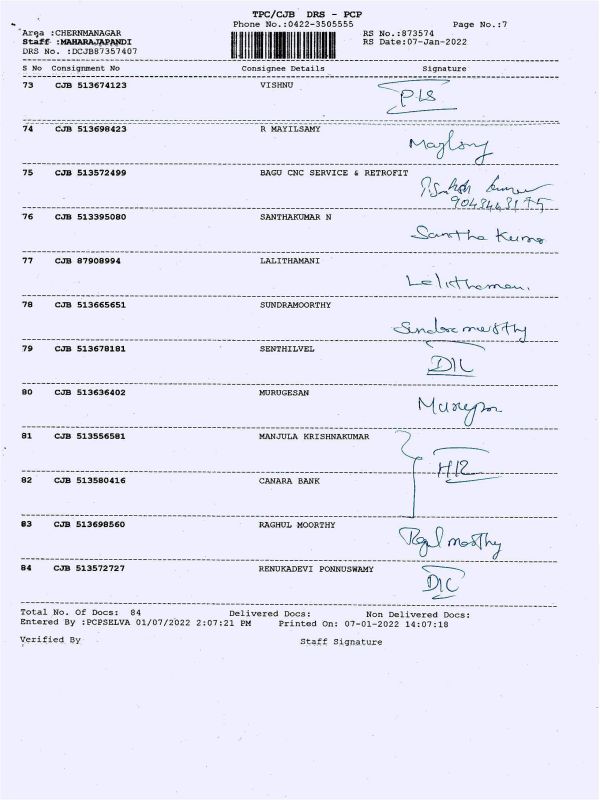 TPC/CJB DRS - PCP
Phone No.:0422-3505555 Page No.:7
Area :CHERNMANAGAR RS No.:873574
Staff :MAHARAJAPANDI RS Date:07-Jan-2022
DRS No. :DCJB87357407
S No Consignment No Consignee Details Signature
73 CJB 513674123 VISHNU
74 CJB 513698423 R MAYILSAMY
75 CJB 513572499 BAGU CNC SERVICE & RETROFIT
76 CJB 513395080 SANTHAKUMAR N
Santha Kumar
77 CJB 87908994 LALITHAMANI
Lalithamani
78 CJB 513665651 SUNDRAMOORTHY
79 CJB 513678181 SENTHILVEL
80 CJB 513636402 MURUGESAN
81 CJB 513556581 MANJULA KRISHNAKUMAR
82 CJB 513580416 CANARA BANK
83 CJB 513698560 RAGHUL MOORTHY
84 CJB 513572727 RENUKADEVI PONNUSWAMY
Total No. Of Docs: 84 Delivered Docs: Non Delivered Docs:
Entered By :PCPSELVA 01/07/2022 2:07:21 PM Printed On: 07-01-2022 14:07:18
Verified By Staff Signature